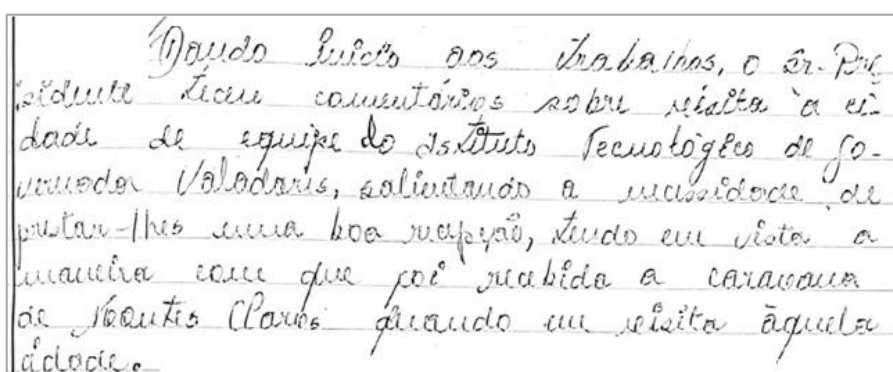 Dando início aos trabalhos, o Sr. Pre
sidente teceu comentários sobre visita à ci-
dade de equipe do Istituto Tecnológico de Go-
vernador Valadaris, salientando a necessidade de
prestar-lhes uma boa recepção, tendo em vista a
maneira com que foi recebida a caravana
de Montes Claros quando em visita àquela
cidade.